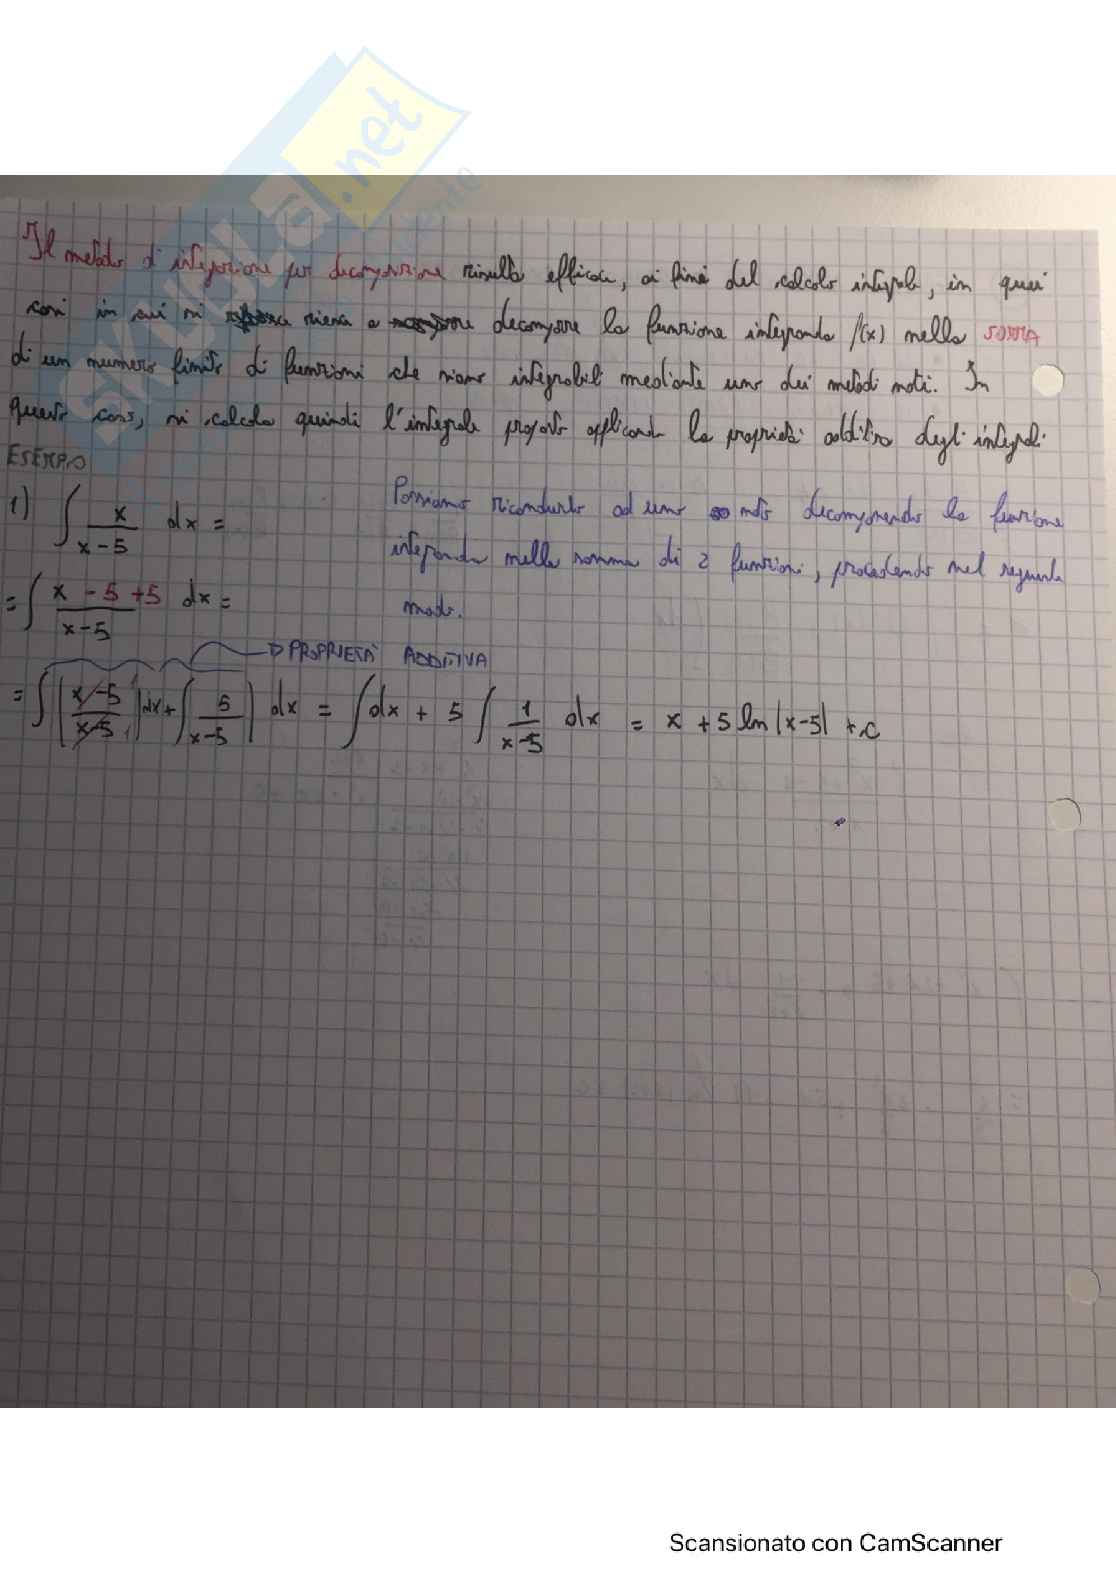 skuola.net
Il metodo di integrazione per decomposizione risulta efficace, ai fini del calcolo integrale, in quei
casi in cui si riesca a decomporre la funzione integranda f(x) nella SOMMA
di un numero finito di funzioni che siano integrabili mediante uno dei metodi noti. In
questo caso, si calcola quindi l'integrale proposto applicando la proprietà additiva degli integrali.
ESEMPIO
1) ∫ x/(x-5) dx =
Possiamo ricondurlo ad uno noto decomponendo la funzione
integranda nella somma di 2 funzioni, procedendo nel seguente
modo.
= ∫ (x - 5 + 5)/(x-5) dx =
PROPRIETÀ ADDITIVA
= ∫ [(x-5)/(x-5)] dx + ∫ [5/(x-5)] dx = ∫ dx + 5 ∫ 1/(x-5) dx = x + 5 ln |x-5| + c
Scansionato con CamScanner